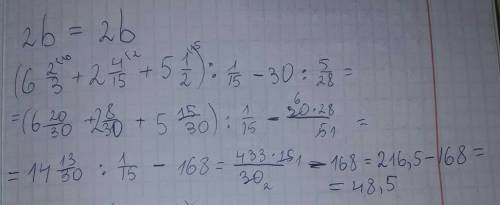 2b = 2b
(6 2/3 \10 + 2 4/15 \2 + 5 1/2 \15) : 1/15 - 30 : 5/28 =
= (6 20/30 + 2 8/30 + 5 15/30) : 1/15 - 30 6 · 28/5 1 =
= 14 13/30 : 1/15 - 168 = 433 · 15 1/30 2 - 168 = 216,5 - 168 =
= 48,5